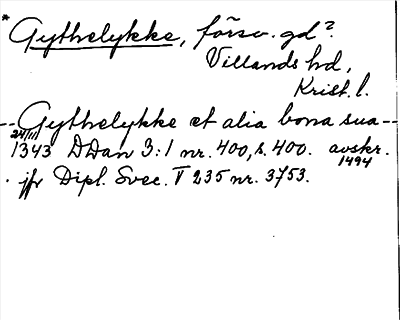 * Gythelykke, försv. gd?
Villands hd,
Krist. l.
-- Gythelykke et alia bona sua --
24/III
1343 DDan 3:1 nr. 400, s. 400. avskr.
1494
. jfr Dipl. Svec. V 235 nr. 3753.